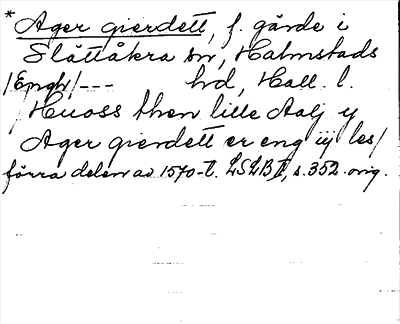 *Ager gierdett, f. gärde i
Slättåkra sn, Halmstads
/Engh/--- hd, Hall. l.
/Huoss then lille Aalj y
Ager gierdett er eng iij les/
förra delen av 1570-t. LSLB II, s. 352 orig.